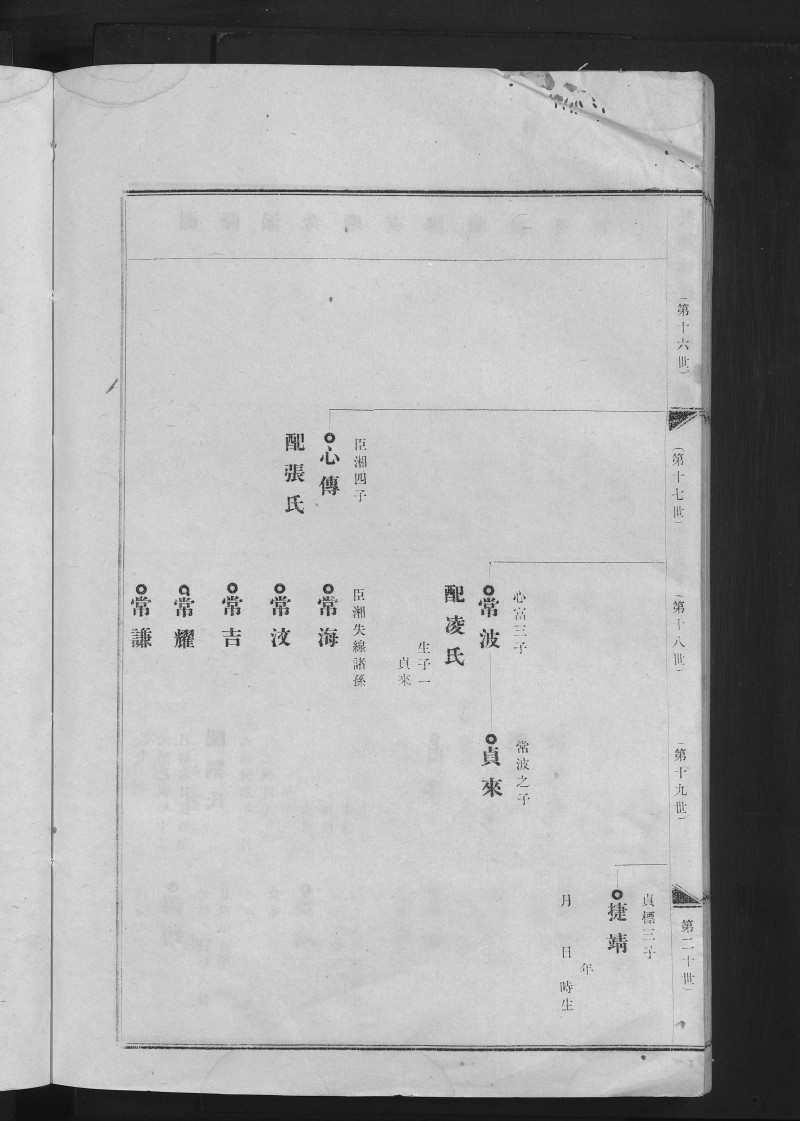 （第十六世）
（第十七世）
（第十八世）
（第十九世）
（第二十世）
臣湘四子
心傳
配張氏
心富三子
常波
配凌氏
生子一
貞來
臣湘失線諸孫
常海
常汶
常吉
常耀
常謙
常波之子
貞來
貞標三子
捷靖
年
月 日 時生